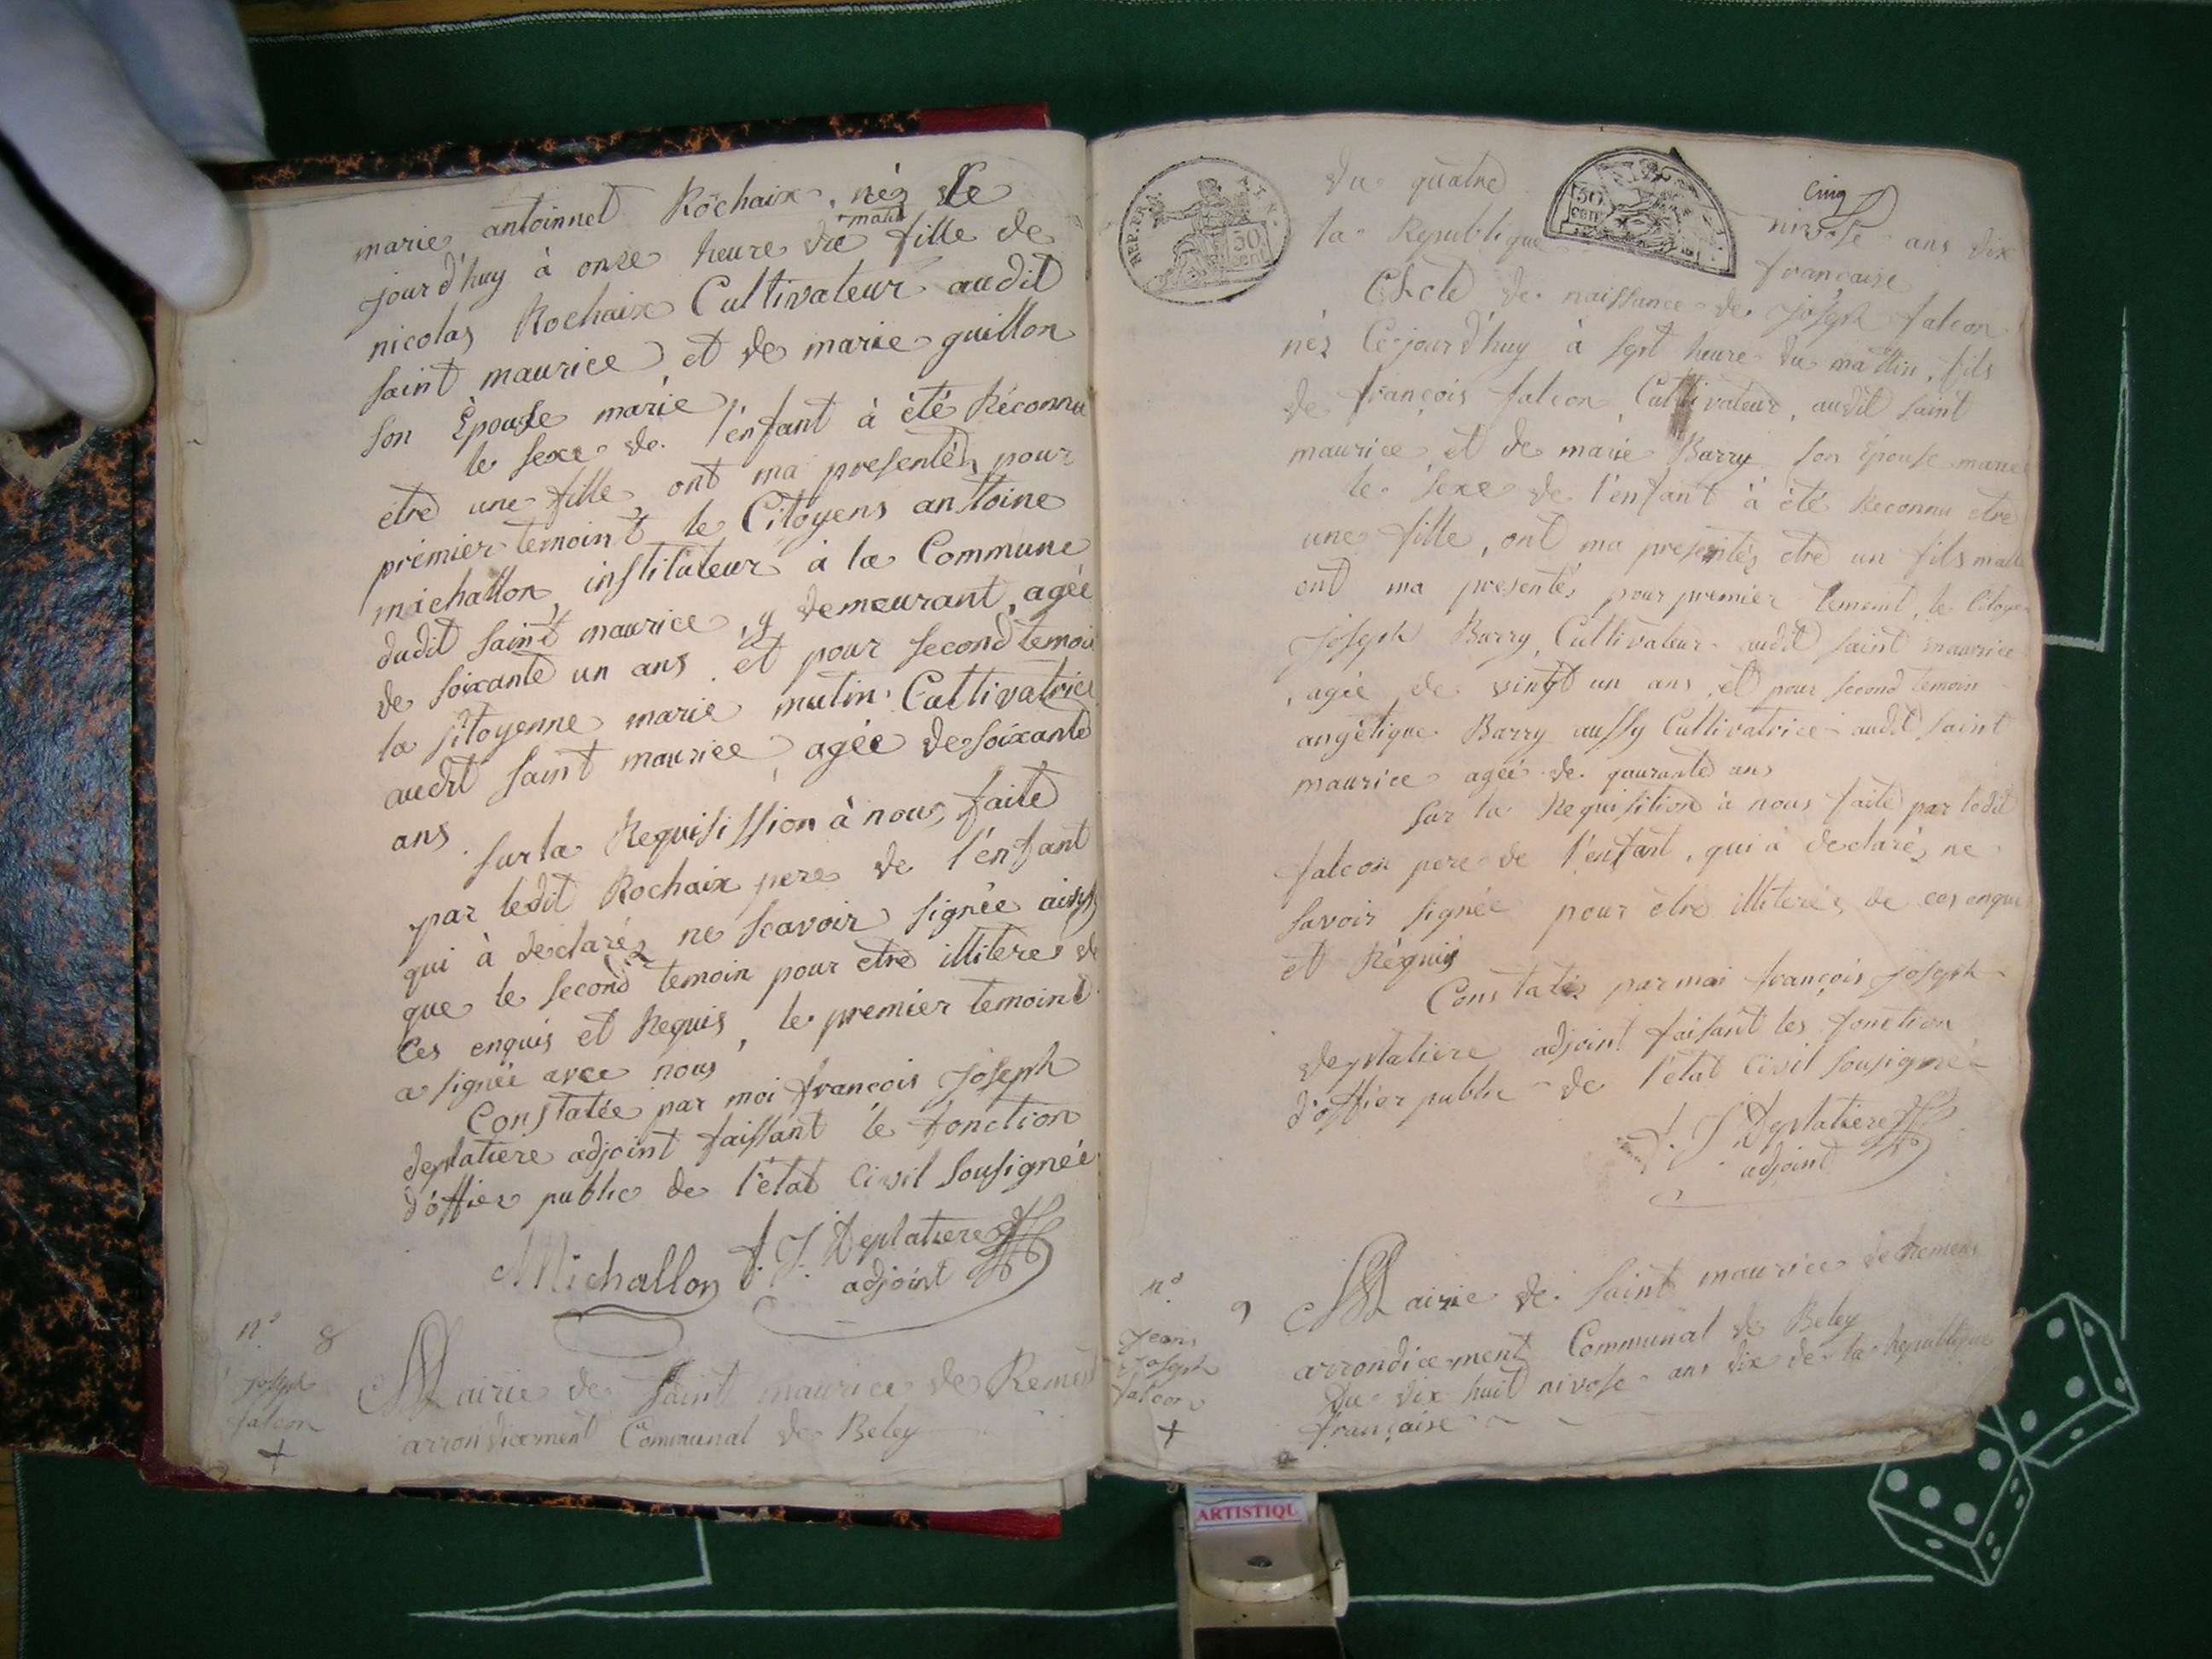 marie antoinnet Rochaix, néz Ce
jourd'huy à onze heure du matin fille de
nicolas Rochaix Cultivateur audit
saint maurice et de marie guillon
son Épouse marié
le sexe de l'énfant à été Réconnu
etre une fille, ont ma presentéz pour
prémier temoint le Citoyens antoine
michallon, instituteur à la Commune
dudit saint maurice, y demeurant, agée
de soixante un ans et pour second temoin
la sitoyenne marie mutin Cultivatrice
audit saint maurice agée de soixante
ans.
sur la Requisission à nous faite
par ledit Rochaix pere de l'énfant
qui à declaréz ne scavoir signée ainsy
que le second temoin pour etre illiteres de
Ces enquis et Requis, le premier temoint
a signée avec nous
Constatée par moi françois Joseph
deplatiere adjoint faissant le fonction
d'offier public de l'état civil sousignée
Michallon f. J. Deplatiere
adjoint
n.° 8
Joseph
falcon
+
Mairie de Saint maurice de Remens
arrondicement Communal de Beley
REP. FRA.
50
cent
50
cent
du quatre cinq nivose ans dix
la Republique française
Acte de naissance de Joseph falcon
néz Ce jourd'huy à sept heure du mattin, fils
de françois falcon, Cultivateur, audit saint
maurice et de marie Barry son Épouse marié
le sexe de l'enfant à été Reconnu etre
une fille, ont ma presentéz etre un fils malle
ont ma presentéz pour premier temoint, le Citoyen
Joseph Barry, Cultivateur audit saint maurice
, agée de vingt un ans et pour second temoin
angélique Barry aussy Cultivatrice audit saint
maurice agée de quarante ans
sur la Requisition à nous faite par ledit
falcon pere de l'enfant, qui à declaréz ne
savoir signée pour etre illiteréz de ces enquis
et Réquis
Constatéz par moi françois Joseph
deplatiere adjoint faisant les fonction
d'offier public de l'état civil sousignée
f. J. Deplatiere
adjoint
n.° 9
Jean
Joseph
falcon
+
Mairie de Saint maurice de Remens
arrondicement Communal de Beley
Du dix huit nivose ans dix de la Republique
française
ARTISTIQU